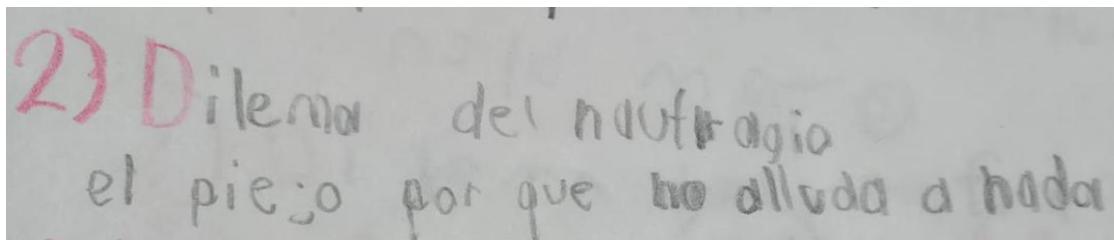 2) Dilema del naufragio
el piejo por que no alluda a nada